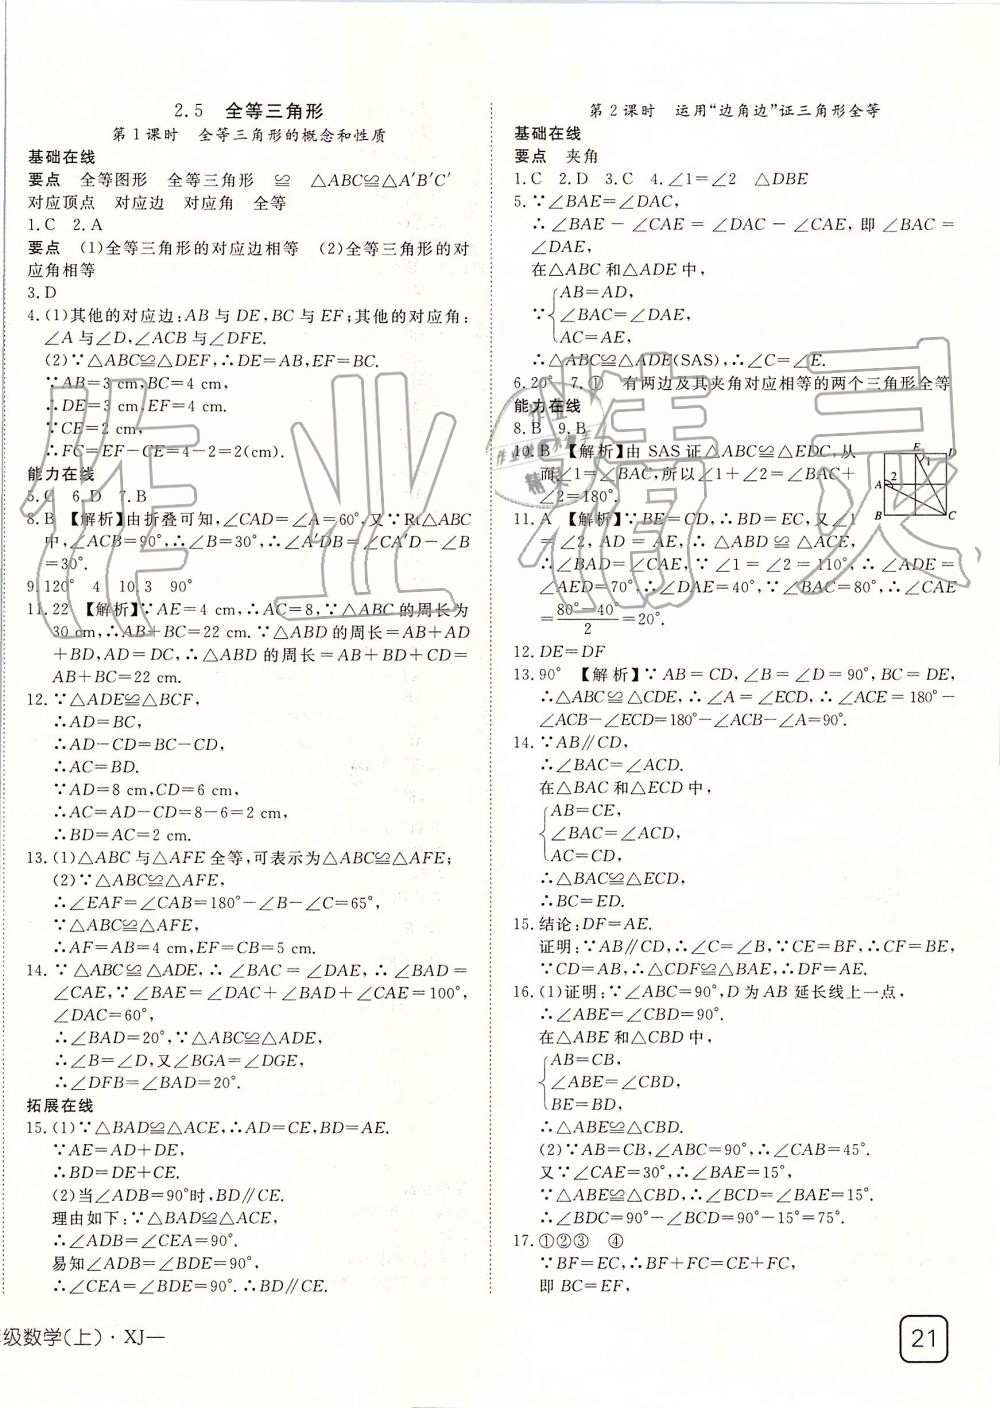 2.5 全等三角形
第1课时 全等三角形的概念和性质
基础在线
要点 全等图形 全等三角形 ≌ △ABC≌△A′B′C′
对应顶点 对应边 对应角 全等
1.C 2.A
要点 (1)全等三角形的对应边相等 (2)全等三角形的对
应角相等
3.D
4.(1)其他的对应边:AB与DE,BC与EF;其他的对应角:
∠A与∠D,∠ACB与∠DFE.
(2)∵△ABC≌△DEF,∴DE=AB,EF=BC.
∵AB=3 cm,BC=4 cm,
∴DE=3 cm,EF=4 cm.
∵CE=2 cm,
∴FC=EF-CE=4-2=2(cm).
能力在线
5.C 6.D 7.B
8.B 【解析】由折叠可知,∠CAD=∠A=60°,又∵Rt△ABC
中,∠ACB=90°,∴∠B=30°,∴∠A′DB=∠CA′D-∠B
=30°.
9.120° 4 10.3 90°
11.22 【解析】∵AE=4 cm,∴AC=8,∵△ABC的周长为
30 cm,∴AB+BC=22 cm.∵△ABD的周长=AB+AD
+BD,AD=DC,∴△ABD的周长=AB+BD+CD=
AB+BC=22 cm.
12.∵△ADE≌△BCF,
∴AD=BC,
∴AD-CD=BC-CD,
∴AC=BD.
∵AD=8 cm,CD=6 cm,
∴AC=AD-CD=8-6=2 cm.
∴BD=AC=2 cm.
13.(1)△ABC与△AFE全等,可表示为△ABC≌△AFE;
(2)∵△ABC≌△AFE,
∴∠EAF=∠CAB=180°-∠B-∠C=65°,
∵△ABC≌△AFE,
∴AF=AB=4 cm,EF=CB=5 cm.
14.∵△ABC≌△ADE,∴∠BAC=∠DAE,∴∠BAD=
∠CAE,∵∠BAE=∠DAC+∠BAD+∠CAE=100°,
∠DAC=60°,
∴∠BAD=20°,∵△ABC≌△ADE,
∴∠B=∠D,又∠BGA=∠DGE,
∴∠DFB=∠BAD=20°.
拓展在线
15.(1)∵△BAD≌△ACE,∴AD=CE,BD=AE.
∵AE=AD+DE,
∴BD=DE+CE.
(2)当∠ADB=90°时,BD∥CE.
理由如下:∵△BAD≌△ACE,
∴∠ADB=∠CEA=90°.
易知∠ADB=∠BDE=90°.
∴∠CEA=∠BDE=90°.∴BD∥CE.
第2课时 运用“边角边”证三角形全等
基础在线
要点 夹角
1.C 2.D 3.C 4.∠1=∠2 △DBE
5.∵∠BAE=∠DAC,
∴∠BAE-∠CAE=∠DAC-∠CAE,即∠BAC=
∠DAE,
在△ABC和△ADE中,
AB=AD,
∵ ∠BAC=∠DAE,
AC=AE,
∴△ABC≌△ADE(SAS),∴∠C=∠E.
6.20° 7.① 有两边及其夹角对应相等的两个三角形全等
能力在线
8.B 9.B
10.B 【解析】由SAS证△ABC≌△EDC,从
而∠1=∠BAC,所以∠1+∠2=∠BAC+
∠2=180°.
E D
1
A 2
B C
11.A 【解析】∵BE=CD,∴BD=EC,又∠1
=∠2,AD=AE,∴△ABD≌△ACE,
∴∠BAD=∠CAE,∵∠1=∠2=110°,∴∠ADE=
∠AED=70°,∴∠DAE=40°,∵∠BAC=80°,∴∠CAE
=80°-40°/2=20°.
12.DE=DF
13.90° 【解析】∵AB=CD,∠B=∠D=90°,BC=DE,
∴△ABC≌△CDE,∴∠A=∠ECD,∴∠ACE=180°-
∠ACB-∠ECD=180°-∠ACB-∠A=90°.
14.∵AB∥CD,
∴∠BAC=∠ACD.
在△BAC和△ECD中,
AB=CE,
∠BAC=∠ACD,
AC=CD,
∴△BAC≌△ECD,
∴BC=ED.
15.结论:DF=AE.
证明:∵AB∥CD,∴∠C=∠B,∵CE=BF,∴CF=BE,
∵CD=AB,∴△CDF≌△BAE,∴DF=AE.
16.(1)证明:∵∠ABC=90°,D为AB延长线上一点,
∴∠ABE=∠CBD=90°.
在△ABE和△CBD中,
AB=CB,
∠ABE=∠CBD,
BE=BD,
∴△ABE≌△CBD.
(2)∵AB=CB,∠ABC=90°,∴∠CAB=45°.
又∵∠CAE=30°,∴∠BAE=15°,
∵△ABE≌△CBD,∴∠BCD=∠BAE=15°.
∴∠BDC=90°-∠BCD=90°-15°=75°.
17.①②③ ④
∵BF=EC,∴BF+FC=CE+FC,
即BC=EF,
级数学(上)·XJ—
21
作业精灵